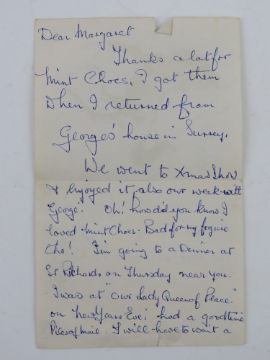 Dear Margaret
Thanks a lot for
Mint Chocs, I got them
when I returned from
George's house in Surrey.
We went to Xmas Show
& enjoyed it also our week with
George. Oh! how did you know I
loved mint Chocs. Bad for my figure
tho'! I'm going to a Dinner at
St Richards on Thursday near you.
I was at "Our Lady Queen of Peace"
on 'New Years Eve! had a good time
I will have to wait a